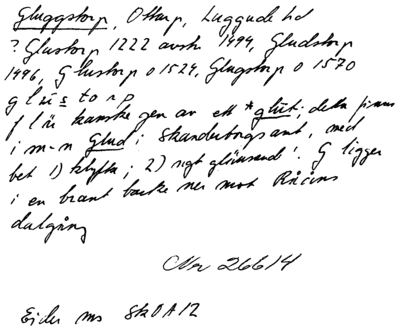 Gluggstorp, Ottarp, Luggude hd
? Glustorp 1222 avskr 1494, Gludstorp
1496, Glustorp o 1524, Glugstorp o 1570
glüstorp
f l ü kanske gen av ett *glūt; detta finns
i m-n Glud i Skanderborgs amt, med
bet 1) klyfta; 2) ngt glänsande'. G ligger
i en brant backe ner mot Rååns
dalgång
Nr 26614
Ejder ms SkOA12